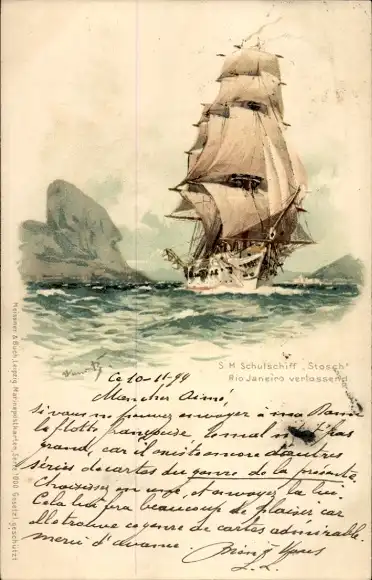 S. M. Schulschiff „Stosch"
Rio Janeiro verlassend
Meissner & Buch, Leipzig, Marinepostkarten, Serie 1000 Gesetzl. geschützt
Ce 10-11-99
Mon cher Aimé,
si vous ne pouvez envoyer à ma
la flotte française, le mal n'est pas
grand, car il existe encore d'autres
séries de cartes du genre de la présente.
Choisissez en une, et envoyez la lui.
Cela lui fera beaucoup de plaisir car
elle trouve ce genre de cartes admirable.
merci d'avance.
L. L.